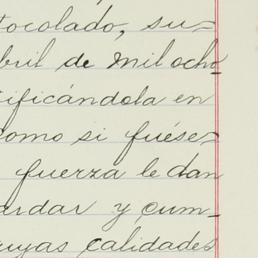 tocolado, su=
bril de mil ocho
ificándola en
como si fuése=
fuerza le dan
ardar y cum-
cuyas calidades